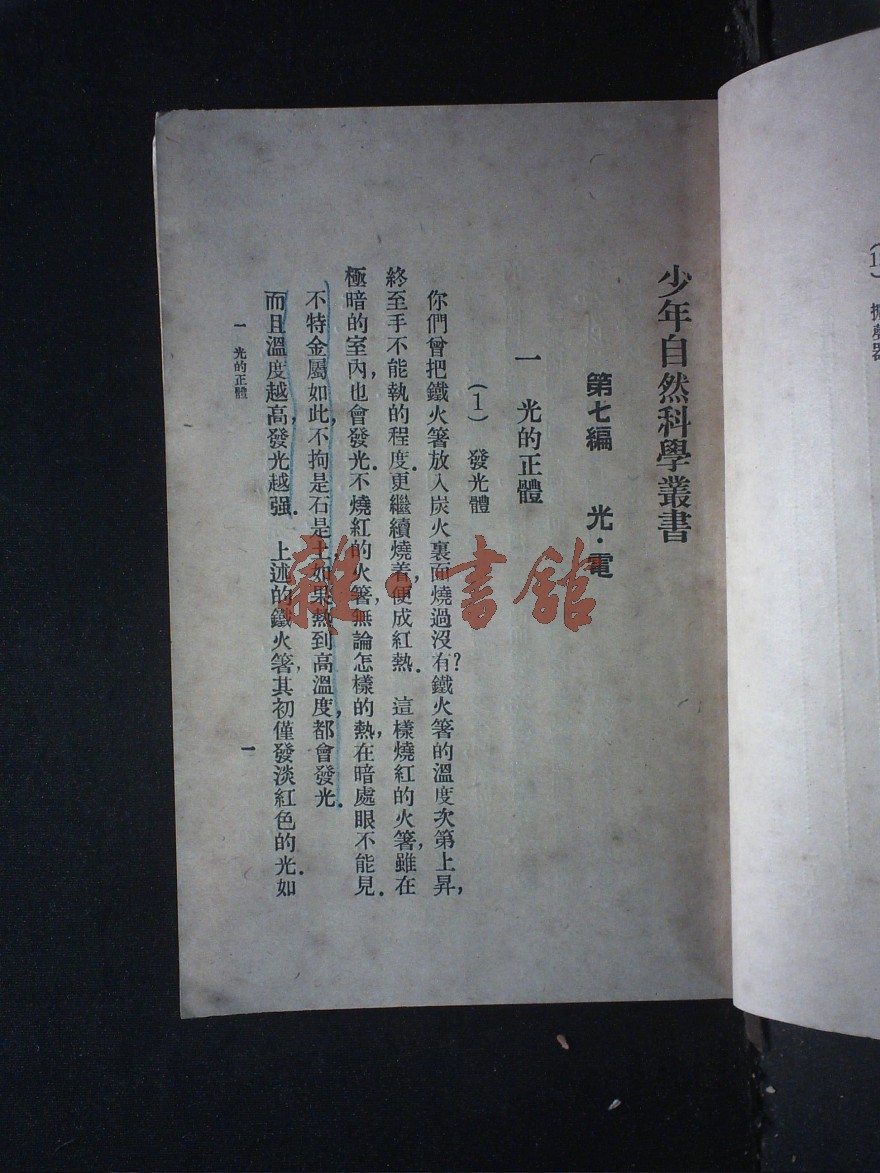 少年自然科學叢書
第七編　光・電
一　光的正體
(1)　發光體
你們曾把鐵火箸放入炭火裏面燒過沒有?鐵火箸的溫度次第上昇,
終至手不能執的程度.更繼續燒着,便成紅熱.　這樣燒紅的火箸,雖在
極暗的室內,也會發光.不燒紅的火箸,無論怎樣的熱,在暗處眼不能見.
不特金屬如此,不拘是石是土,如果熱到高溫度,都會發光.
而且溫度越高,發光越强.　上述的鐵火箸,其初僅發淡紅色的光.如
一　光的正體
一
雜・書館
(1)